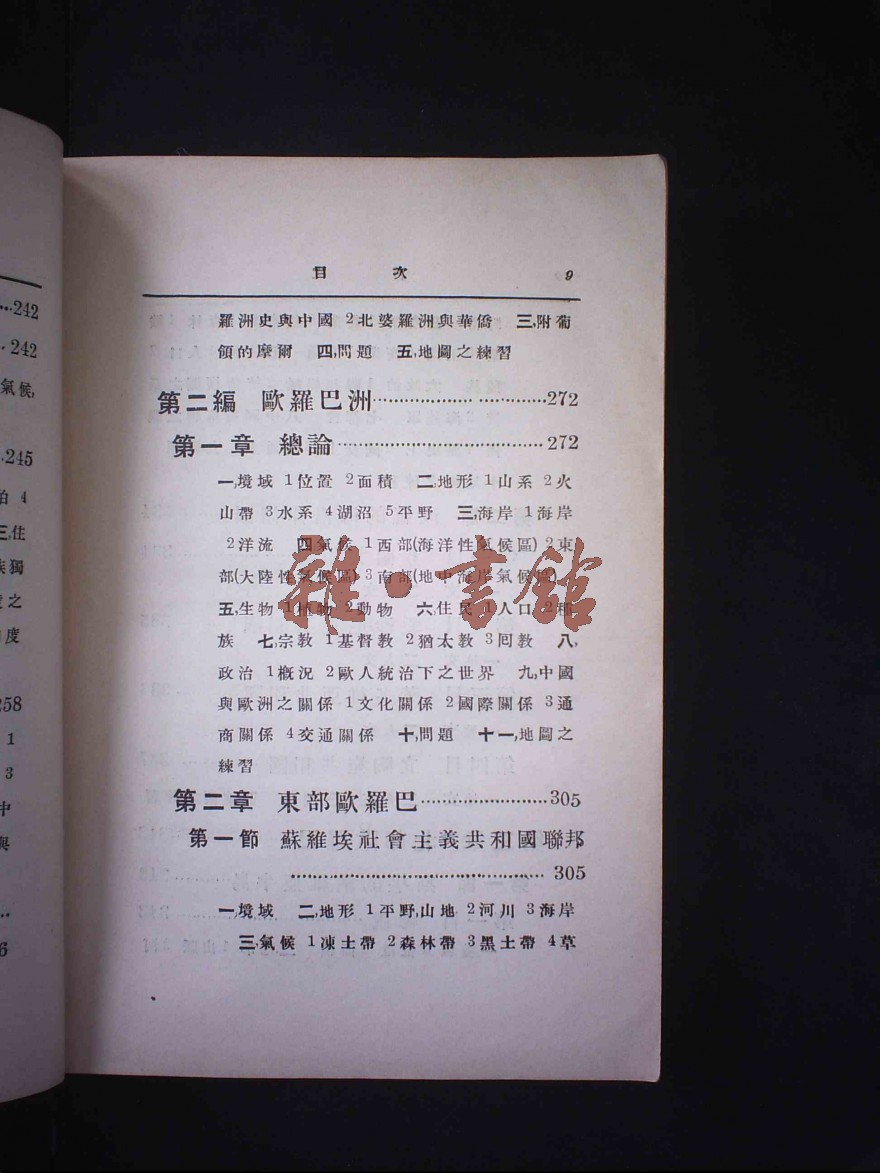 242
242
氣候,
245
伯 4
三,住
族獨
度之
印度
258
1
3
中
與
6
目 次 9
羅洲史與中國 2北婆羅洲與華僑 三,附葡
領的摩爾 四,問題 五,地圖之練習
第二編 歐羅巴洲……272
第一章 總論……272
一,境域 1位置 2面積 二,地形 1山系 2火
山帶 3水系 4湖沼 5平野 三,海岸 1海岸
2洋流 四,氣候 1西部(海洋性氣候區) 2東
部(大陸性氣候區) 3南部(地中海岸氣候區)
五,生物 1植物 2動物 六,住民 1人口 2種
族 七,宗教 1基督教 2猶太教 3回教 八,
政治 1概況 2歐人統治下之世界 九,中國
與歐洲之關係 1文化關係 2國際關係 3通
商關係 4交通關係 十,問題 十一,地圖之
練習
第二章 東部歐羅巴……305
第一節 蘇維埃社會主義共和國聯邦
……305
一,境域 二,地形 1平野,山地 2河川 3海岸
三,氣候 1凍土帶 2森林帶 3黑土帶 4草
雜·書館